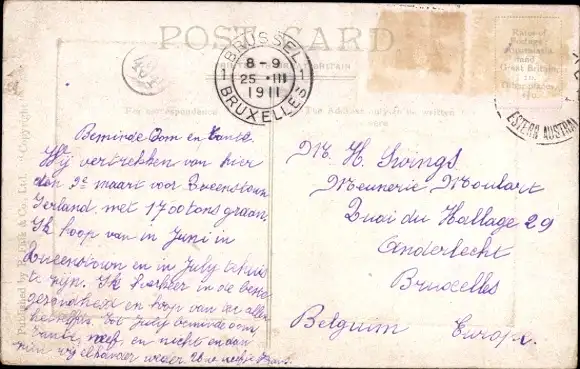 POST CARD
BRUSSEL
8-9
1 25 III 1
1911
BRUXELLES
Rates of
Postage
Australasia
and
Great Britain
ESTERN AUSTRAL
For correspondence
The Address only to be written
Beminde Oom en tante.
Wij vertrekken van hier
den 9e maart voor Queenstown
Ierland met 1700 tons graan
Ik hoop van in Juni in
Queenstown en in July tehuis
te zijn. Ik verkeer in de beste
gezondheid en hoop van u allen
hetzelfde. Tot July beminde oom,
tante, neef en nicht en dan
zien wij elkander weder. Uw neefje
M. H. Swings
Meunerie Moulart
Quai du Hallage 29
Anderlecht
Bruxelles
Belgium Europe.
& Co. Ltd. Copyright